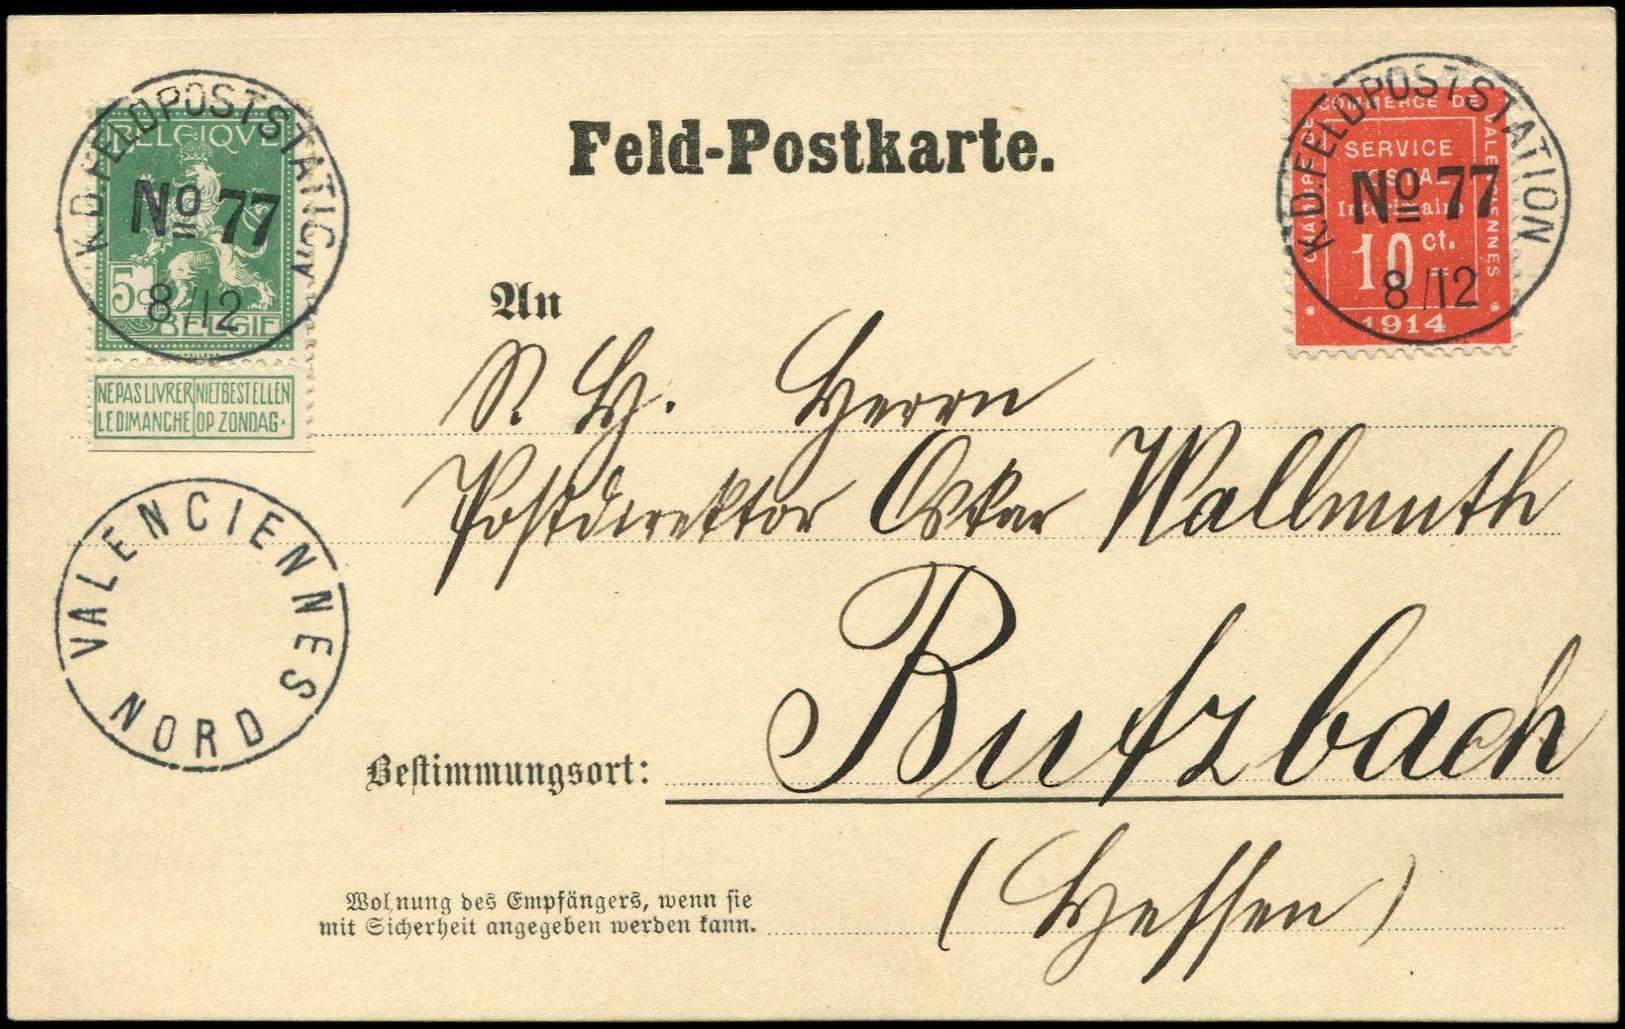 Feld-Postkarte.
K.D.FELDPOSTSTATIO
No 77
8/12
BELGIQVE
5c
BELGIE
NE PAS LIVRER LE DIMANCHE
NIET BESTELLEN OP ZONDAG.
K.D.FELDPOSTSTATION
No 77
8/12
CHAMBRE DE COMMERCE DE VALENCIENNES
SERVICE
POSTAL
Interimaire
10 ct.
1914
An
S. H. Herrn
Postdirektor Oskar Wallmuth
VALENCIENNES
NORD
Bestimmungsort: Butzbach
(Hessen)
Wohnung des Empfängers, wenn sie
mit Sicherheit angegeben werden kann.